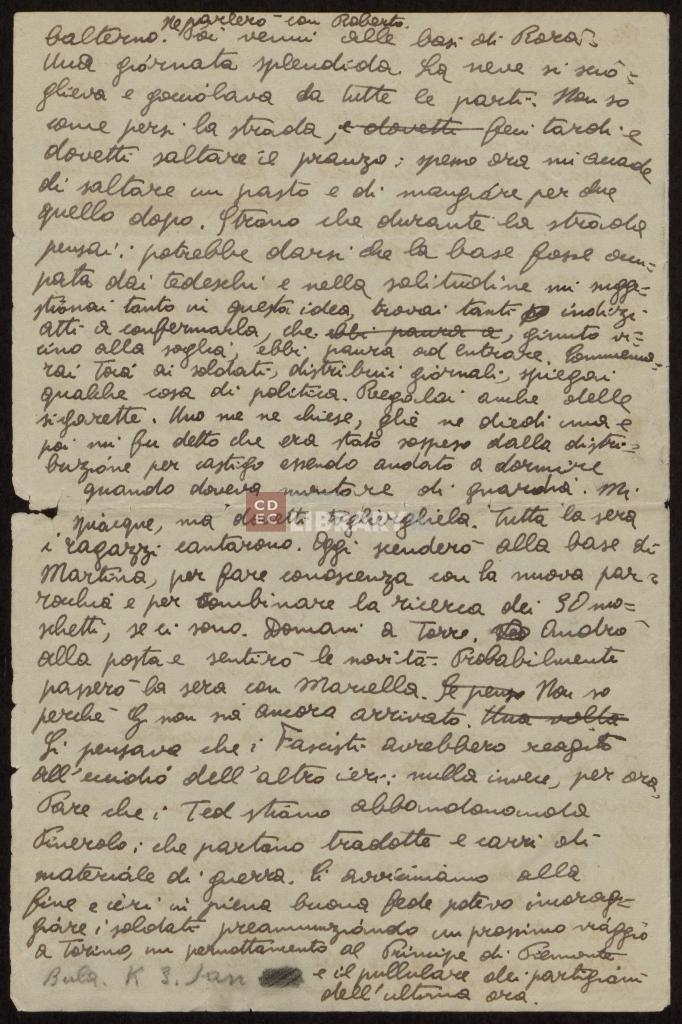 Ne parlerò con Roberto.
balterno. Poi venni alle basi di Rorà.
Una giornata splendida. La neve si scio-
glieva e gocciolava da tutte le parti. Non so
come persi la strada, e dovetti feci tardi e
dovetti saltare il pranzo; spesso ora mi accade
di saltare un pasto e di mangiare per due
quello dopo. Strano che durante la strada
pensai: potrebbe darsi che la base fosse occu-
pata dai tedeschi e nella solitudine mi sugge-
stionai tanto in questa idea, trovai tanti indizi
atti a confermarla, che ebbi paura a, giunto vi-
cino alla soglia, ebbi paura ad entrare. Commemo-
rai Toià ai soldati, distribuii giornali, spiegai
qualche cosa di politica. Regalai anche delle
sigarette. Uno me ne chiese, gliè ne diedi una e
poi mi fu detto che era stato sospeso dalla distri-
buzione per castigo essendo andato a dormire
quando doveva montare di guardia. Mi
spiacque, ma dovetti toglierglela. Tutta la sera
i ragazzi cantarono. Oggi scenderò alla base di
Martina, per fare conoscenza con la nuova par-
rocchia e per combinare la ricerca dei 30 mo-
schetti, se ci sono. Domani a Torre. Andrò
alla posta e sentirò le novità. Probabilmente
passerò la sera con Marcella. Se penso Non so
perchè G non sià ancora arrivato. Una volta
Si pensava che i Fascisti avrebbero reagito
all'eccidio dell'altro ieri: nulla invece, per ora.
Pare che i Ted stiano abbandonando
Pinerolo; che partano tradotte e carri di
materiale di guerra. Ci avviciniamo alla
fine e ieri in piena buona fede potevo incorag-
giare i soldati preannunziando un prossimo viaggio
a Torino, un pernottamento al Principe di Piemonte
e il pullulare dei partigiani
dell'ultima ora.
Bula. K 3. Jan
CD
EC LIBRARY